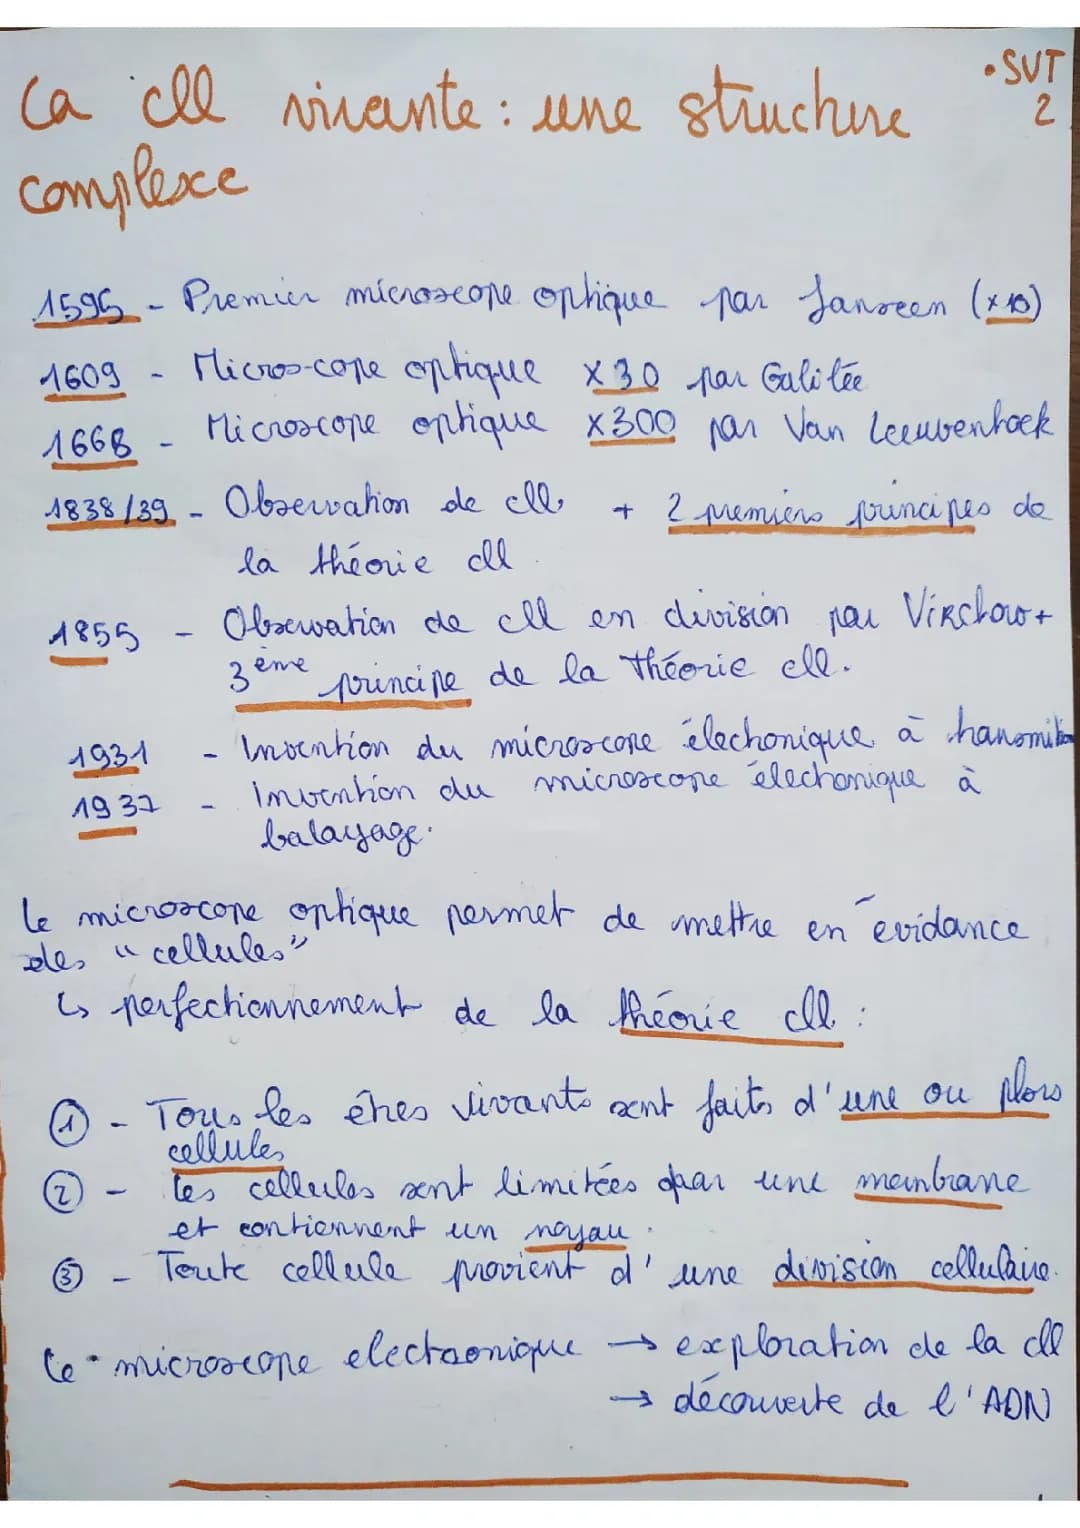 • SVT
2
La cll vivante : une structure
complexe
1595 - Premier microscope optique par Janseen (x10)
1609 - Micros-cope optique x30 par Galilée
1668 - Microscope optique x300 par Van Leeuvenhoek
1838/39 - Observation de cll + 2 premiers principes de
la théorie cll.
1855 - Observation de cll en division par Virchow +
3ème principe de la théorie cll.
1931 - Invention du microscope électronique à transmition
1937 - Invention du microscope électronique à
balayage.
Le microscope optique permet de mettre en évidance
des "cellules"
↳ perfectionnement de la théorie cll :
① - Tous les êtres vivants sont faits d'une ou plors
cellules
② - Les cellules sont limitées par une membrane
et contiennent un noyau.
③ - Toute cellule provient d'une division cellulaire.
Le microscope electronique → exploration de la cll
→ découverte de l'ADN